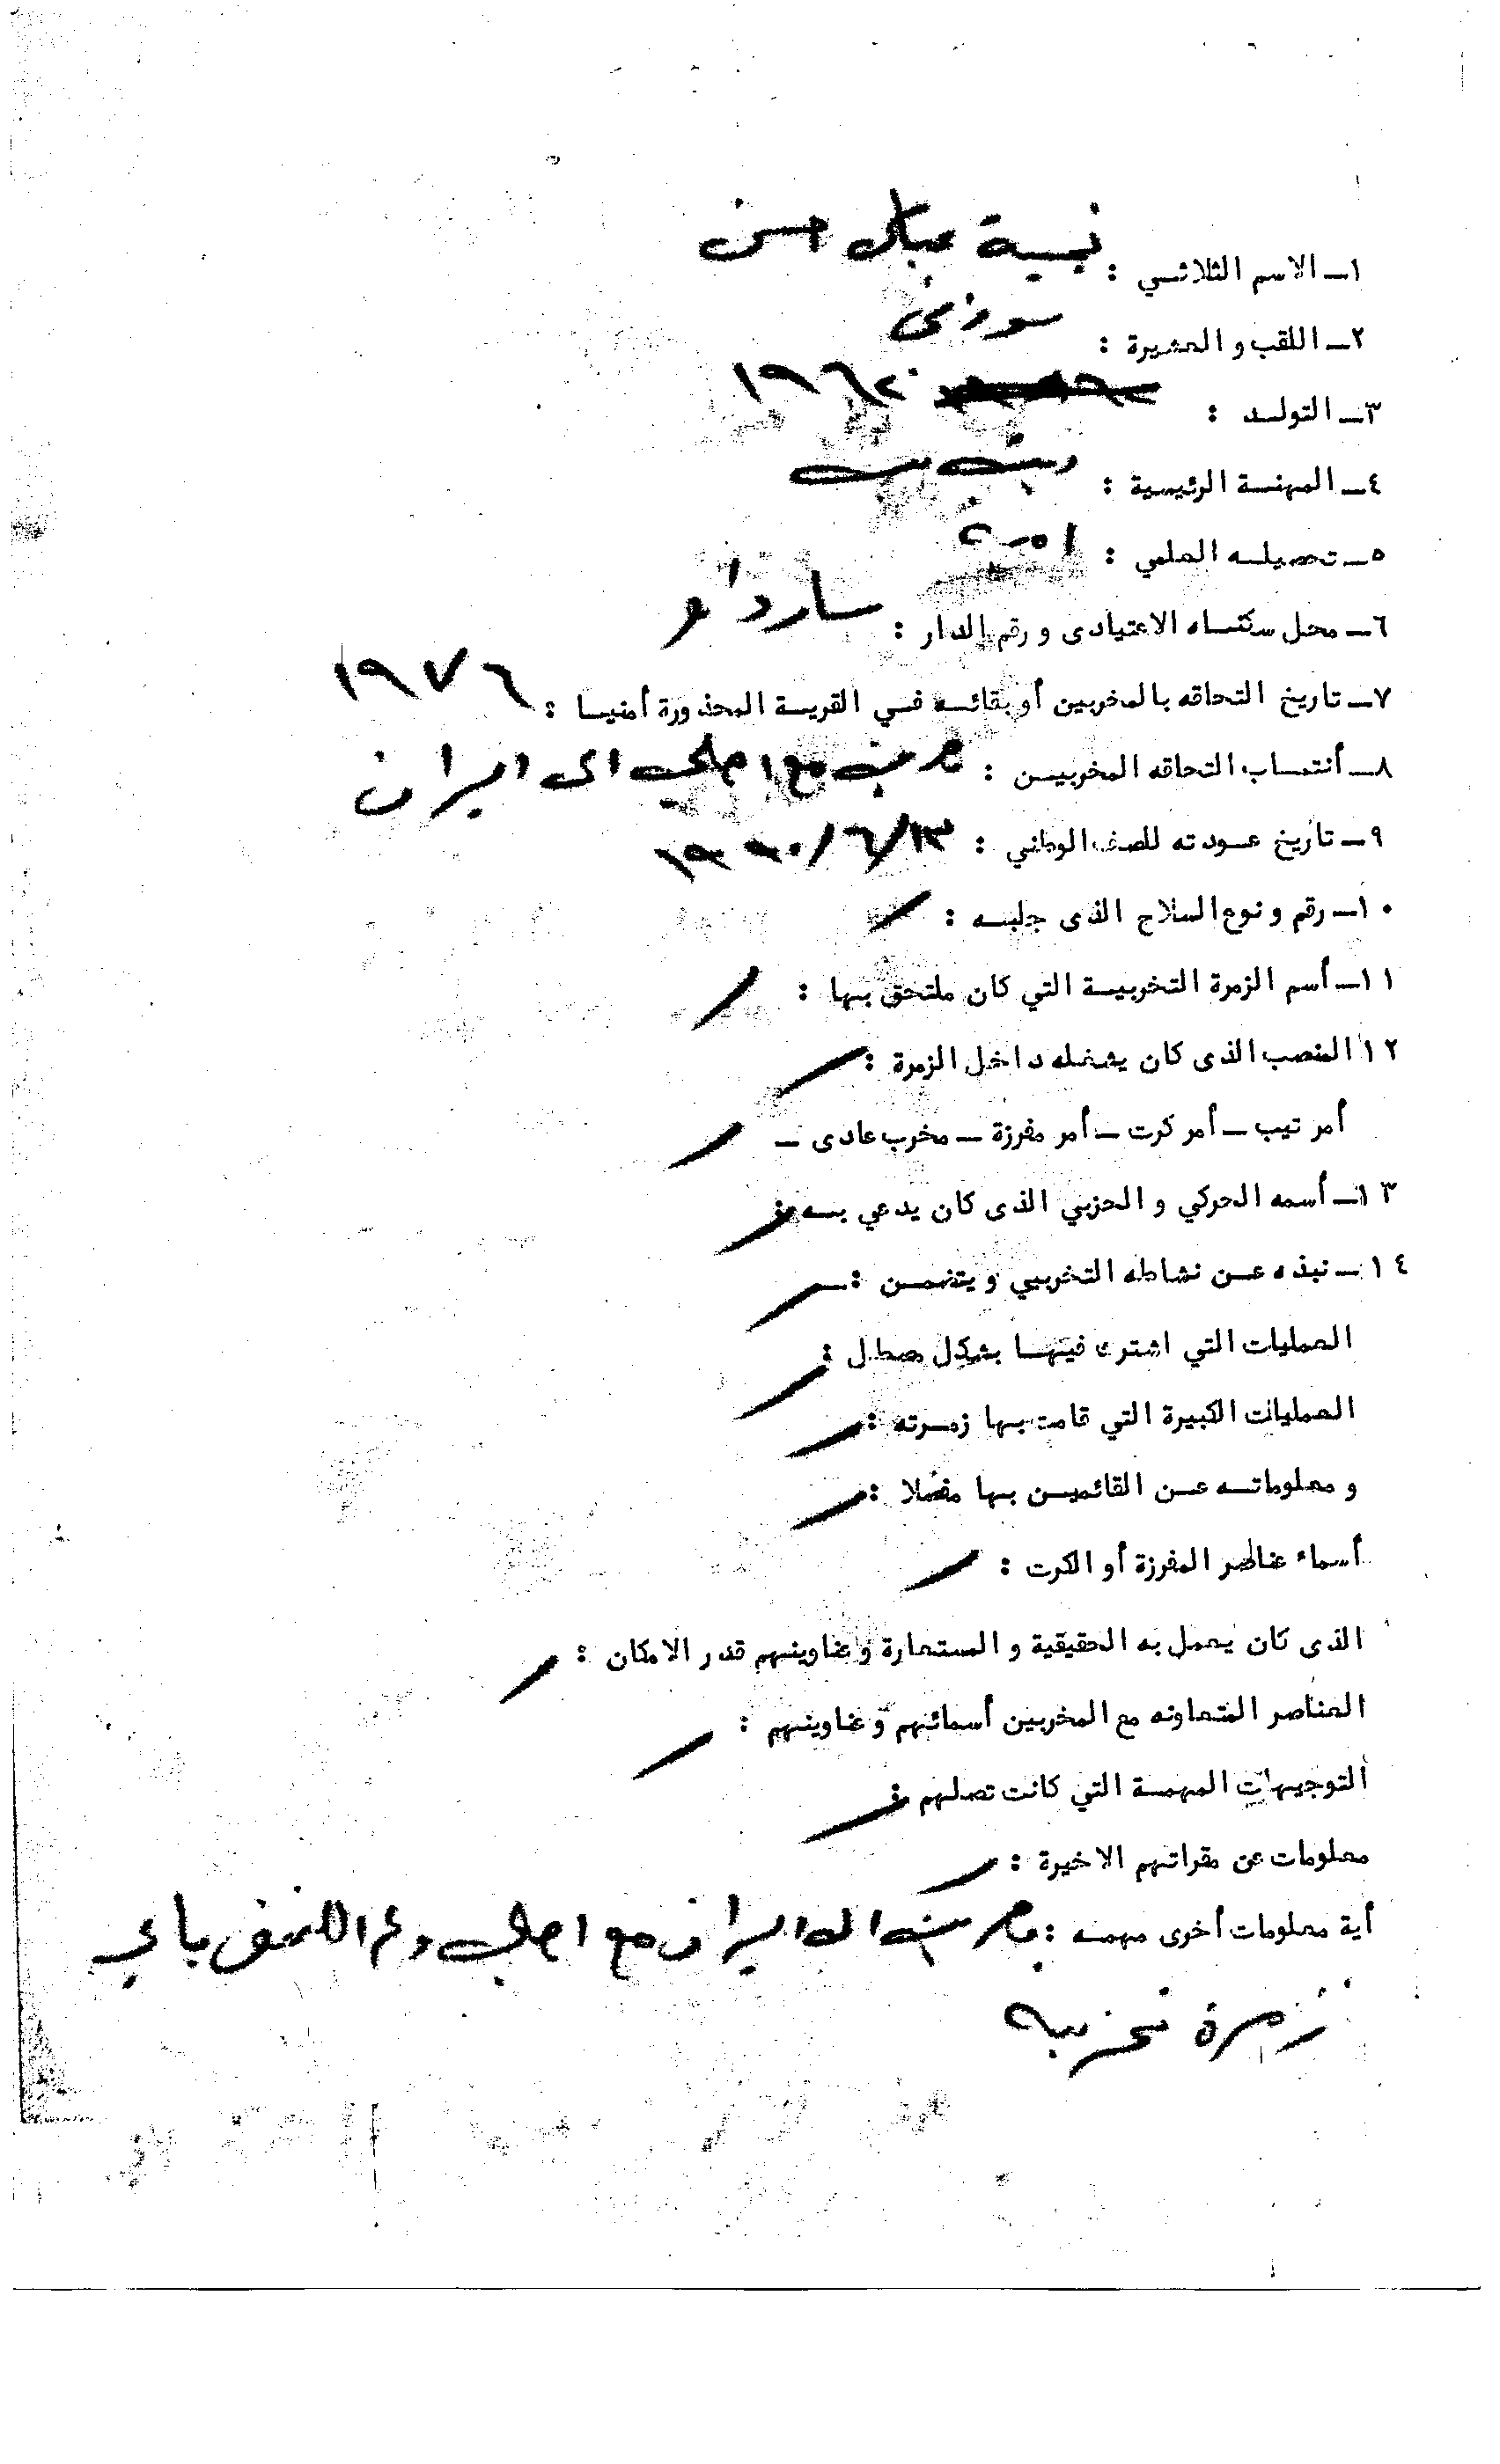 ١ــ الاسم الثلاثي : نجيبة عباس حسن
٢ــ اللقب و العشيرة : سورني
٣ــ التولد : ١٩٦٢
٤ــ المهنة الرئيسية : ربة بيت
٥ــ تحصيله العلمي : امية
٦ــ محل سكناه الاعتيادى و رقم الدار :
٧ــ تاريخ التحاقه بالمخربين أو بقائه في القرية المحذورة أمنيا : ١٩٧٦
٨ــ أنتساب التحاقه المخربين : هربت مع اهلي الى ايران
٩ــ تاريخ عودته للصف الوطني : ١٣/٦/١٩٩٠
١٠ــ رقم و نوع السلاح الذى جلبه : /
١١ــ أسم الزمرة التخريبية التي كان ملتحق بها : /
١٢ المنصب الذى كان يشغله داخل الزمرة : /
أمر تيب ــ أمر كرت ــ أمر مفرزة ــ مخرب عادى ــ /
١٣ــ أسمه الحركي و الحزبي الذى كان يدعي به : /
١٤ــ نبذه عن نشاطه التخريبي و يتضمن : /
العمليات التي اشترك فيها بشكل مصطل : /
العمليات الكبيرة التي قامت بها زمرته : /
و معلوماته عن القائمين بها مفصلا : /
أسماء عناصر المفرزة أو الكرت : /
الذى كان يعمل به الحقيقية و المستعارة و عناوينهم قدر الامكان : /
العناصر المتعاونه مع المخربين أسمائهم و عناوينهم : /
التوجيهات المهمة التي كانت تصلهم : /
معلومات عن مقراتهم الاخيرة : /
أية معلومات أخرى مهمه : هربت الى ايران مع اهلي ولم التحق باي
زمرة تخريبه